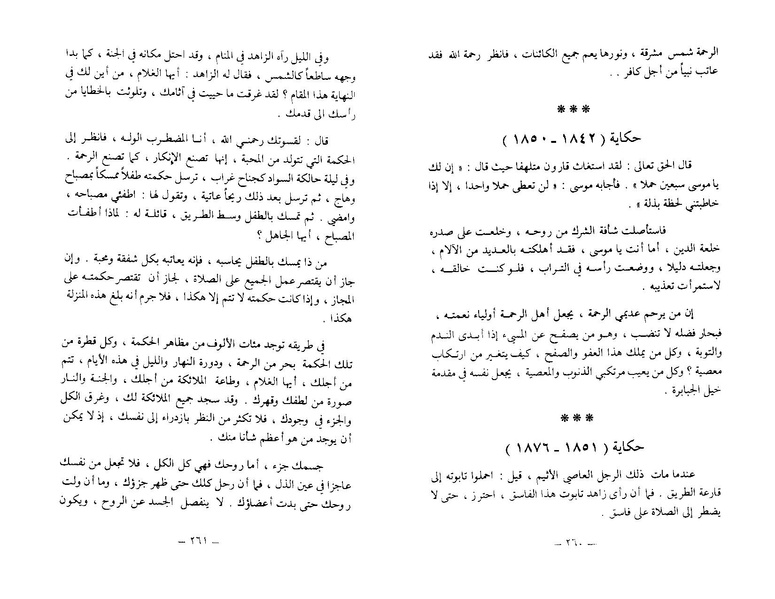 الرحمة شمس مشرقة ، ونورها يعم جميع الكائنات ، فانظر رحمة الله فقد
عاتب نبياً من أجل كافر . .
* * *
حكاية ( ١٨٤٢ ـ ١٨٥٠ )
قال الحق تعالى : لقد استغاث قارون متلهفا حيث قال : « إن لك
يا موسى سبعين حملا » . فأجابه موسى : « لن تعطى حملا واحدا ، إلا إذا
خاطبتني لحظة بذلة » .
فاستأصلت شأفة الشرك من روحه ، وخلعت على صدره
خلعة الدين ، أما أنت يا موسى ، فقد أهلكته بالعديد من الآلام ،
وجعلته دليلا ، ووضعت رأسه في التراب ، فلو كنت خالقه ،
لاستمرأت تعذيبه .
إن من يرحم عديمي الرحمة ، يجعل أهل الرحمة أولياء نعمته ،
فبحار فضله لا تنضب ، وهو من يصفح عن المسيء إذا أبدى الندم
والتوبة ، وكل من يملك هذا العفو والصفح ، كيف يتغير من ارتكاب
معصية ؟ وكل من يعيب مرتكبي الذنوب والمعصية ، يجعل نفسه في مقدمة
خيل الجبابرة .
* * *
حكاية ( ١٨٥١ ـ ١٨٧٦ )
عندما مات ذلك الرجل العاصي الأثيم ، قيل : احملوا تابوته إلى
قارعة الطريق . فما أن رأى زاهد تابوت هذا الفاسق ، احترز ، حتى لا
يضطر إلى الصلاة على فاسق .
ـ ٢٦٠ ـ
وفي الليل رآه الزاهد في المنام ، وقد احتل مكانه في الجنة ، كما بدا
وجهه ساطعاً كالشمس ، فقال له الزاهد : أيها الغلام ، من أين لك في
النهاية هذا المقام ؟ لقد غرقت ما حييت في آثامك ، وتلوثت بالخطايا من
رأسك الى قدمك .
قال : لقسوتك رحمني الله ، أنا المضطرب الوله ، فانظر إلى
الحكمة التي تتولد من المحبة ، إنها تصنع الإنكار ، كما تصنع الرحمة .
وفي ليلة حالكة السواد كجناح غراب ، ترسل حكمته طفلاً ممسكاً بمصباح
وهاج ، ثم ترسل بعد ذلك ريحاً عاتية ، وتقول لها : اطفئي مصباحه ،
وامضي . ثم تمسك بالطفل وسط الطريق ، قائلة له : لماذا أطفأت
المصباح ، أيها الجاهل ؟
من ذا يمسك بالطفل يحاسبه ، فإنه يعاتبه بكل شفقة ومحبة . وإن
جاز أن يقتصر عمل الجميع على الصلاة ، لجاز أن تقتصر حكمته على
المجاز ، وإذا كانت حكمته لا تتم إلا هكذا ، فلا جرم أنه بلغ هذه المنزلة
هكذا .
في طريقه توجد مئات الألوف من مظاهر الحكمة ، وكل قطرة من
تلك الحكمة بحر من الرحمة ، ودورة النهار والليل في هذه الأيام ، تتم
من أجلك ، أيها الغلام ، وطاعة الملائكة من أجلك ، والجنة والنار
صورة من لطفك وقهرك . وقد سجد جميع الملائكة لك ، وغرق الكل
والجزء في وجودك ، فلا تكثر من النظر بازدراء إلى نفسك ، إذ لا يمكن
أن يوجد من هو أعظم شأنا منك .
جسمك جزء ، أما روحك فهي كل الكل ، فلا تجعل من نفسك
عاجزا في عين الذل ، فما أن رحل كلك حتى ظهر جزؤك ، وما أن ولت
روحك حتى بدت أعضاؤك . لا ينفصل الجسد عن الروح ، ويكون
ـ ٢٦١ ـ